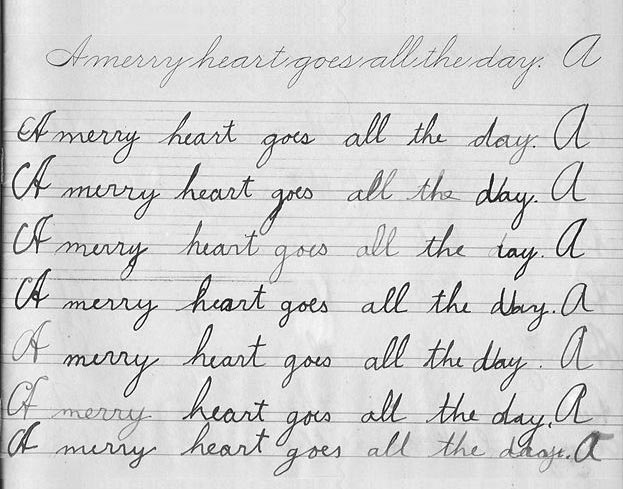 A merry heart goes all the day. A
A merry heart goes all the day. A
A merry heart goes all the day. A
A merry heart goes all the day. A
A merry heart goes all the day. A
A merry heart goes all the day. A
A merry heart goes all the day. A
A merry heart goes all the day. A